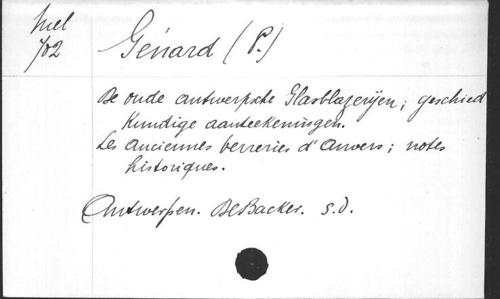 Mel
702
Génard (P.)
De oude antwerpsche Glasblazerijen; geschied
kundige aanteekeningen.
Les Anciennes verreries d'Anvers; notes
historiques.
Antwerpen. DeBacker. s.d.